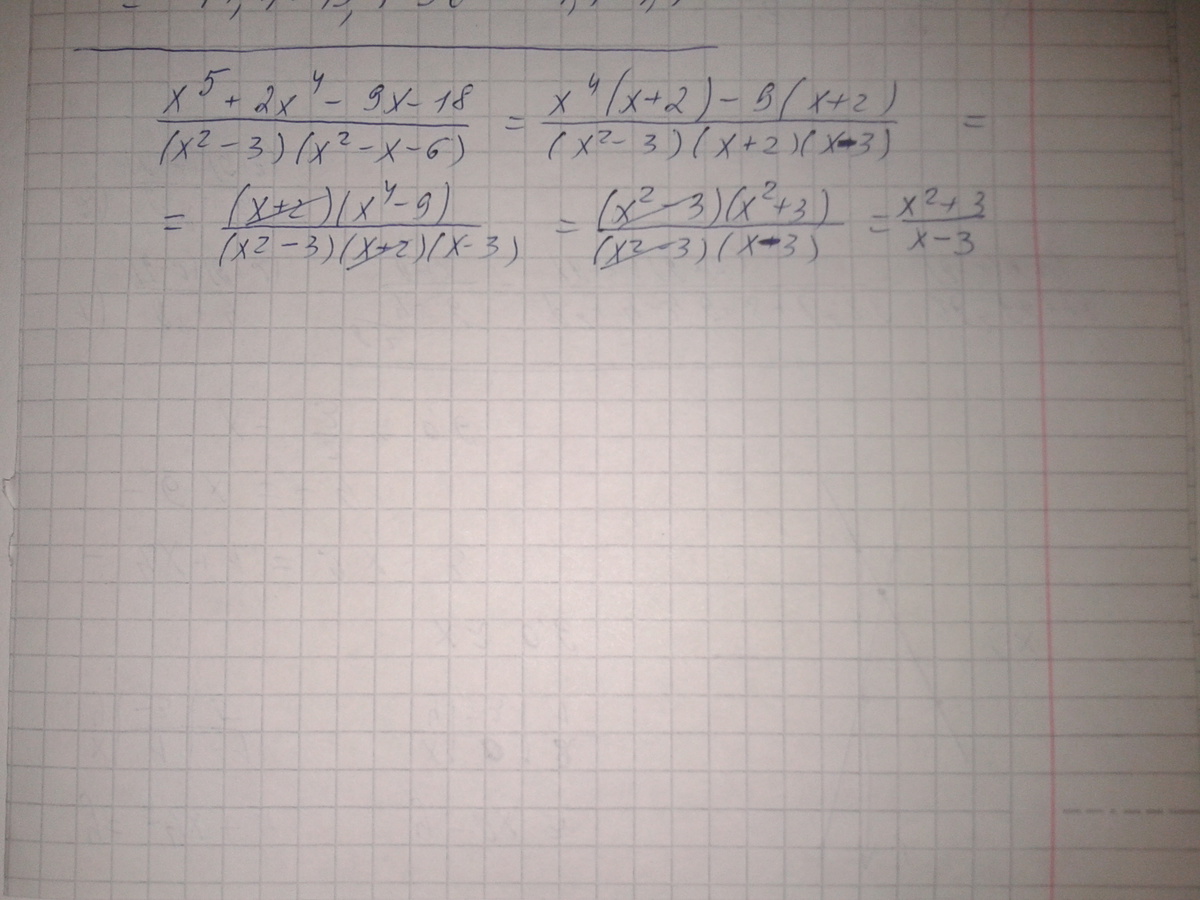 x⁵ + 2x⁴ - 9x - 18 / (x² - 3)(x² - x - 6) = x⁴(x+2) - 9(x+2) / (x² - 3)(x+2)(x-3) =
= (x+2)(x⁴-9) / (x²-3)(x+2)(x-3) = (x²-3)(x²+3) / (x²-3)(x-3) = x²+3 / x-3